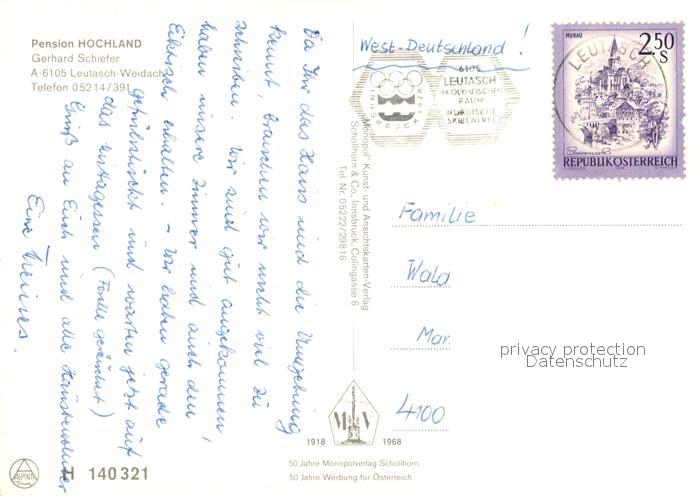 Pension HOCHLAND
Gerhard Schiefer
A-6105 Leutasch-Weidach
Telefon 05214/391
Da Ihr das Haus und die Umgebung
kennt, brauchen wir nicht viel zu
schreiben. Wir sind gut angekommen,
haben unsere Zimmer und auch den
erhalten. – Wir haben gerade
gefrühstückt und warten jetzt auf
das Mittagessen (Forelle geräuchert)
Gruß an Euch und alle Hausbewohner
Eure
West-Deutschland!
INNSBRUCK 1976
6105
LEUTASCH
IM OLYMPISCHEN
RAUM
NORDISCHE
SKIBEWERBE
LEUTASCH
MURAU
2.50
S
REPUBLIK ÖSTERREICH
"Monopol" Kunst- und Ansichtskarten-Verlag
Schöllhorn & Co., Innsbruck, Colingasse 6
Tel. Nr. 05222/29816
Familie
Wald
Mar
4100
privacy protection
Datenschutz
M V
1918 1968
50 Jahre Monopolverlag Schöllhorn
50 Jahre Werbung für Österreich
ALPINA
H 140321